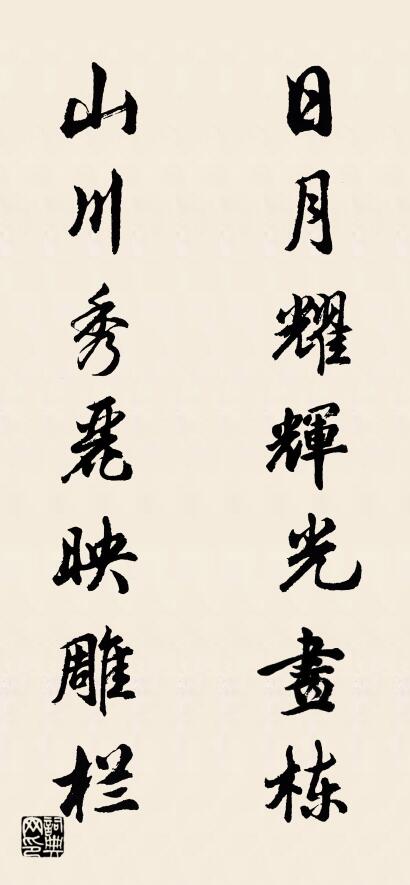 日月耀輝光畫栋
山川秀麗映雕栏
詞典网印